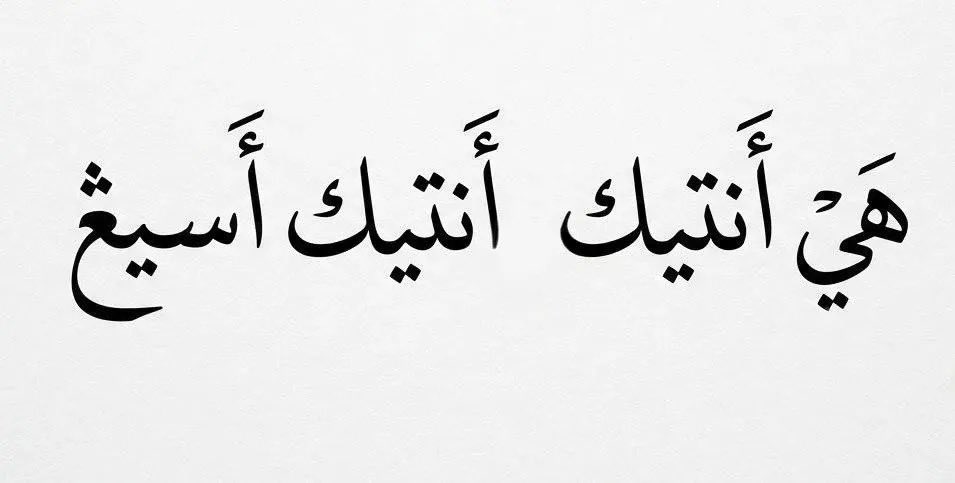 هَيْ أَنتيك أَنتيك أَسيڠ